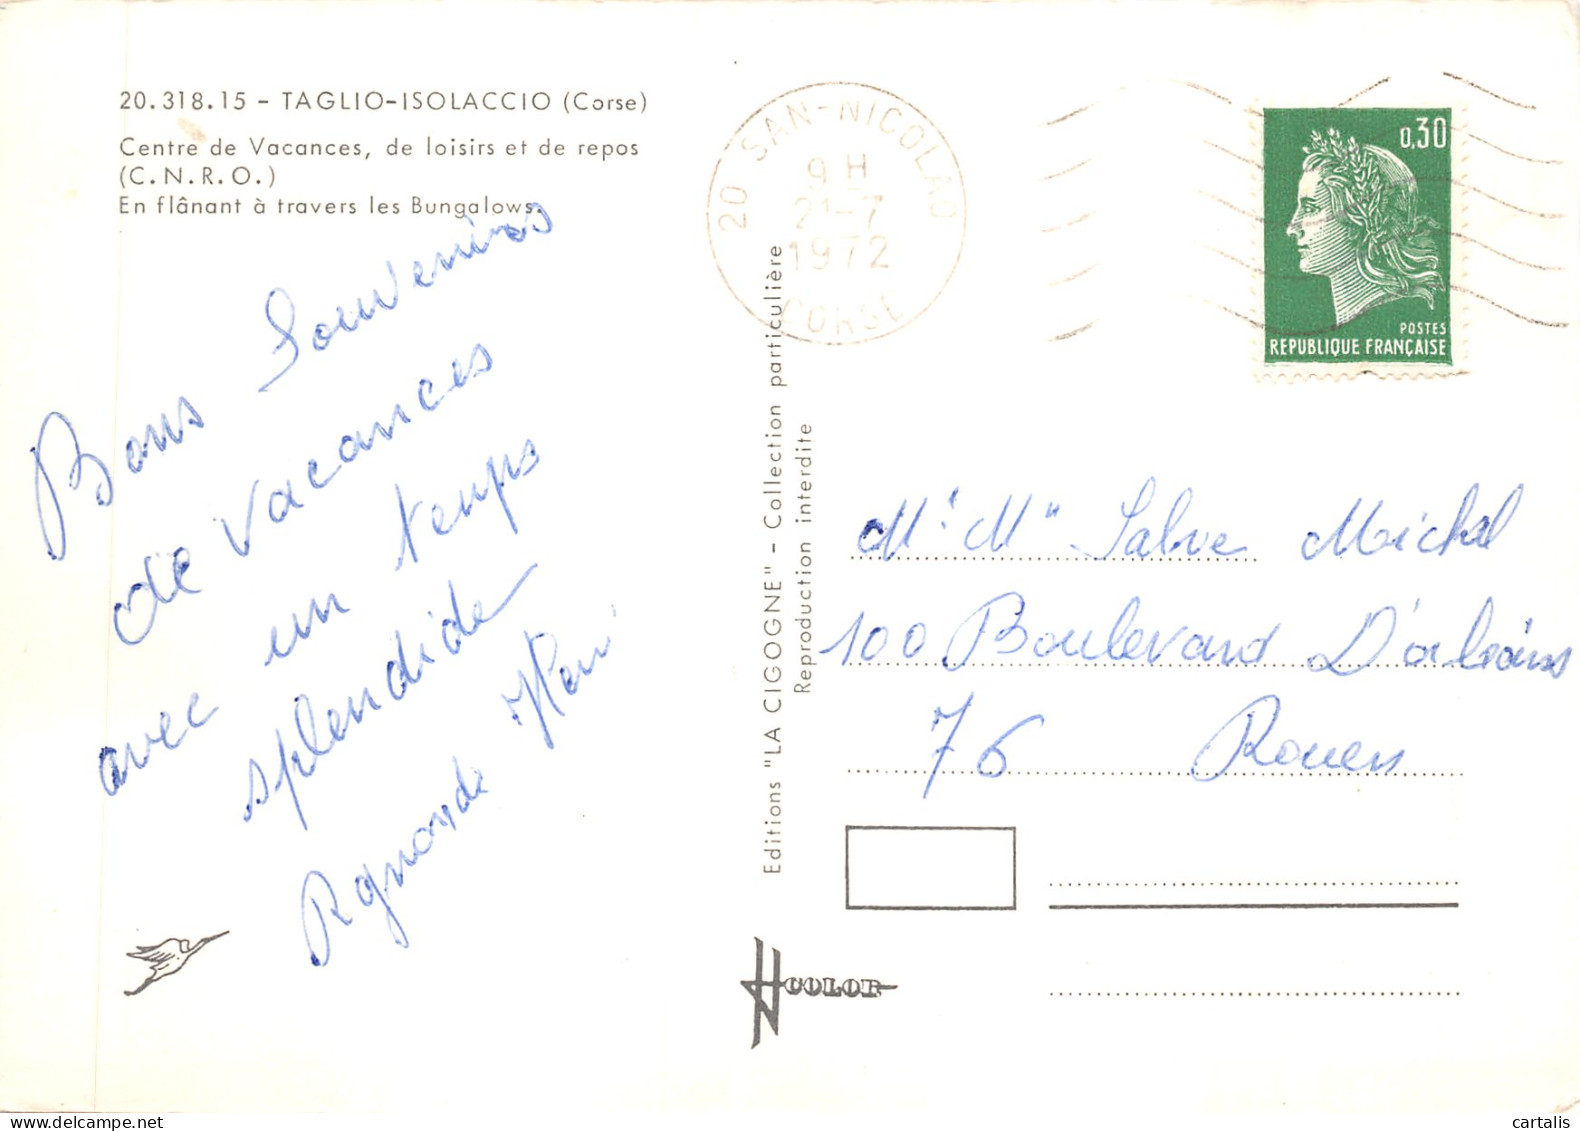 20.318.15 - TAGLIO-ISOLACCIO (Corse)
Centre de Vacances, de loisirs et de repos
(C.N.R.O.)
En flânant à travers les Bungalows.
Bons Souvenirs
de vacances
avec un temps
splendide
Editions "LA CIGOGNE" - Collection particulière
Reproduction interdite
20 SAN-NICOLAO
9 H
21-7
1972
CORSE
0,30
POSTES
REPUBLIQUE FRANÇAISE
Mr Mme Salve Michel
100 Boulevard D'orléans
76 Rouen
COLOR
cartalis